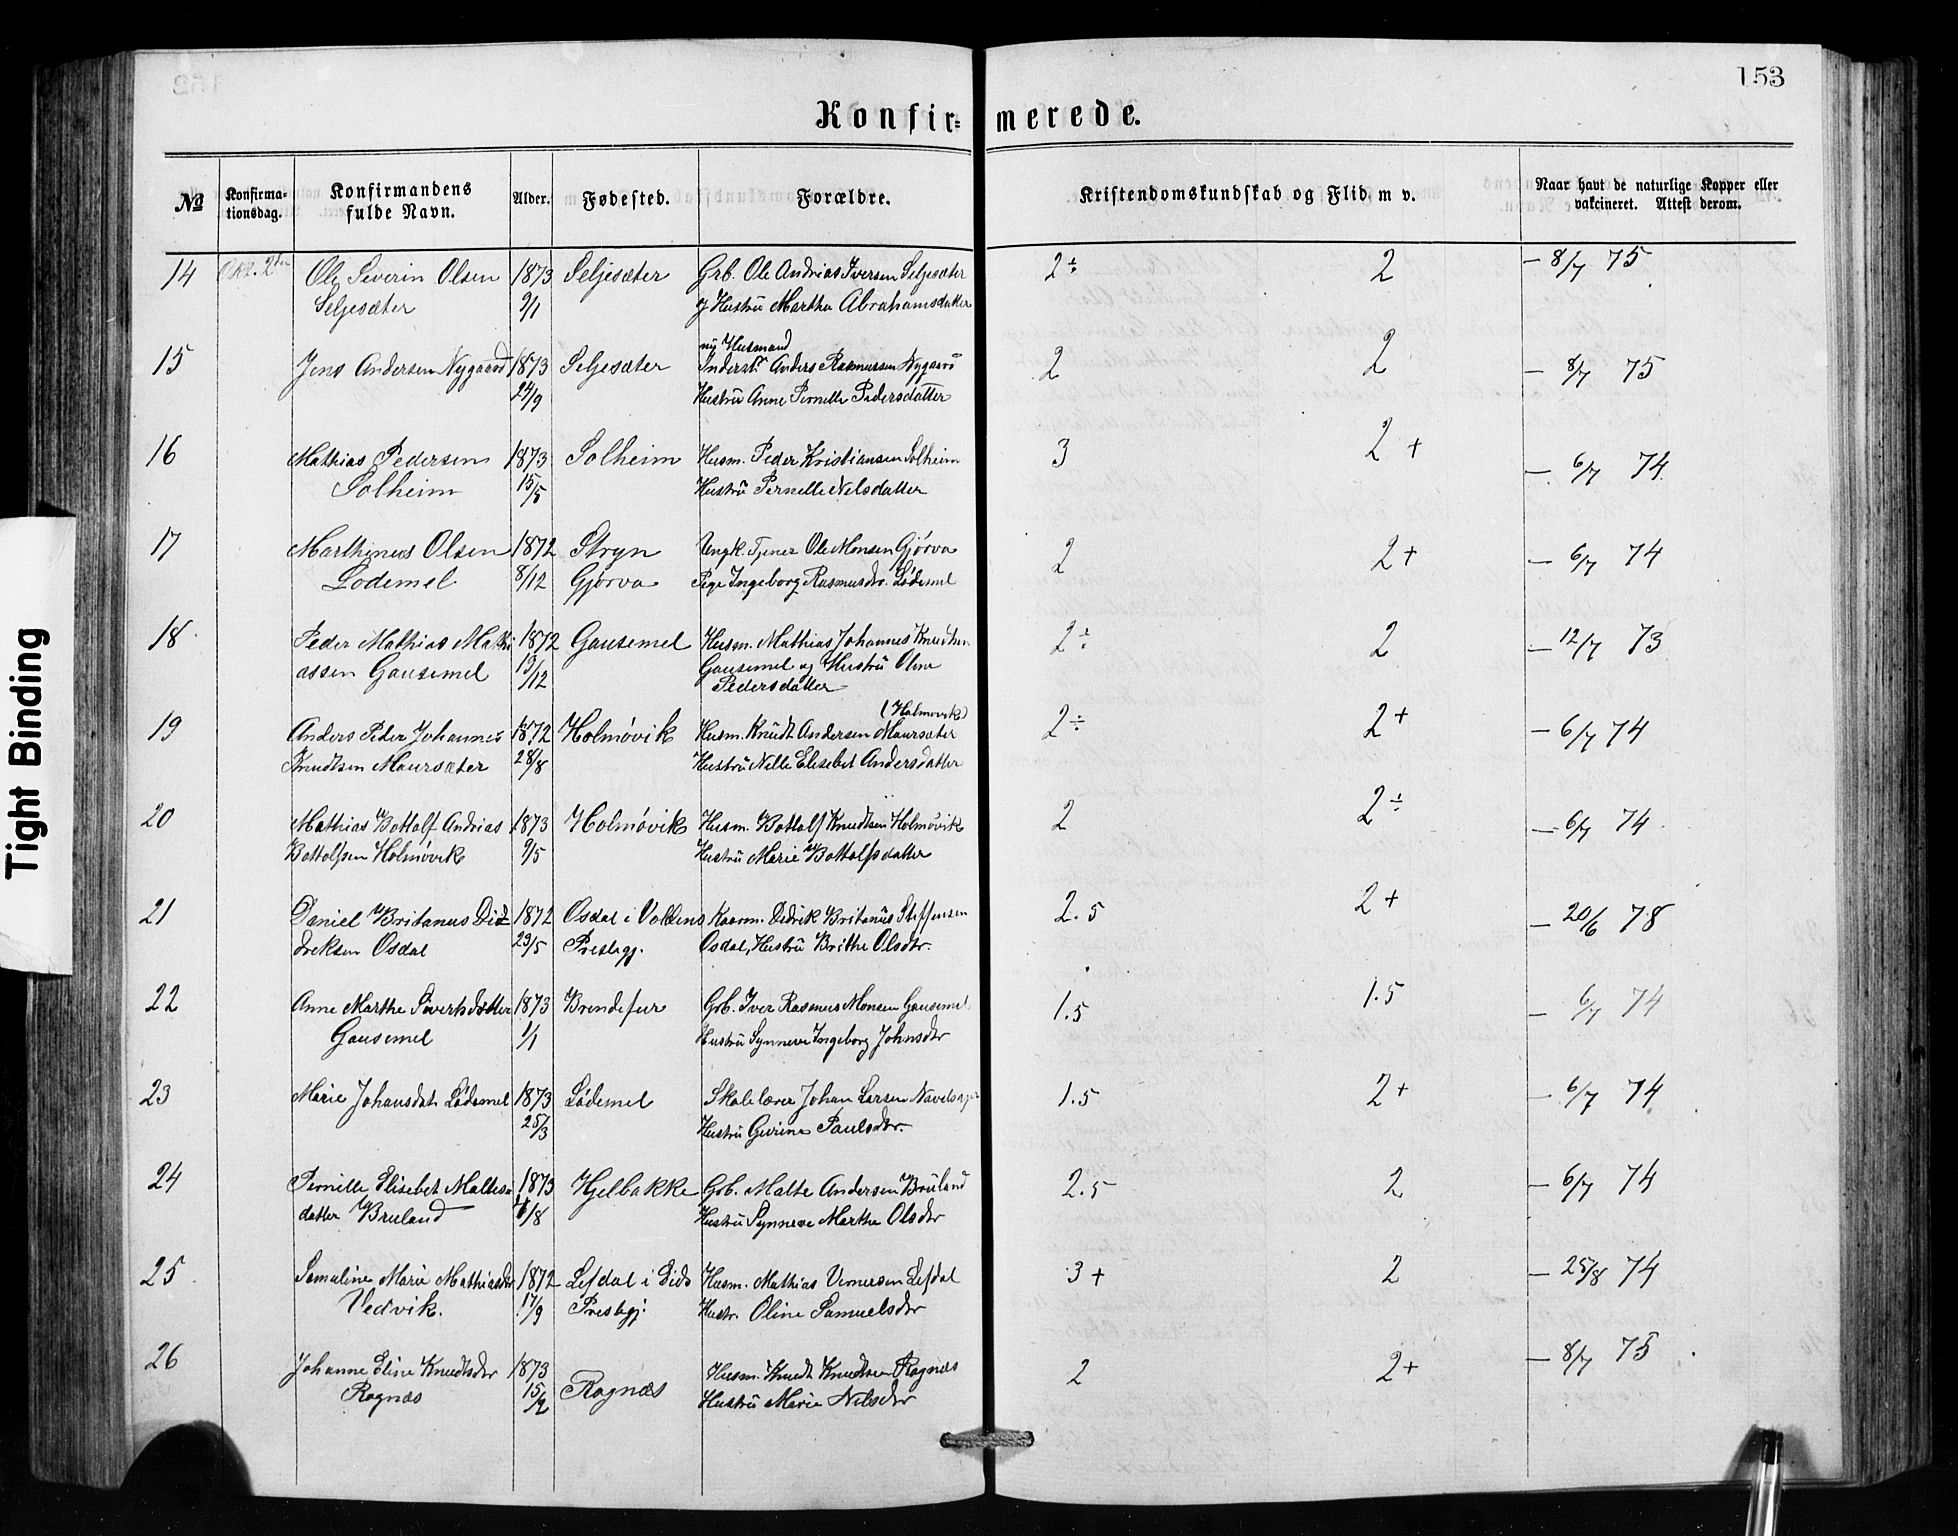 153
Konfirmerede.
№ Konfirmationsdag. Konfirmandens fulde Navn. Alder. Fødested. Forældre. Kristendomskundskab og Flid m v. Naar havt de naturlige Kopper eller vakcineret. Attest derom.
14 Okt. 2den Ole Severin Olsen 1873 Seljesæter Grb. Ole Andrias Iversen Seljesæter 2÷ 2 – 8/7 75
Seljesæter 9/1 og Hustru Martha Abrahamsdatter
ny Husmand
15 Jens Andersen Nygaard 1873 Seljesæter Inderst. Anders Rasmussen Nygaard 2 2 – 8/7 75
24/9 Hustru Anne Pernelle Pedersdatter
16 Mathias Pedersen 1873 Solheim Husm. Peder Kristiansen Solheim 3 2+ – 6/7 74
Solheim 15/5 Hustru Pernelle Nelsdatter
17 Marthinus Olsen 1872 Stryn Ungk. Tjener Ole Monsen Gjørva 2 2+ – 6/7 74
Lødemel 8/12 Gjørva Pige Ingeborg Rasmusdr. Lødemel
18 Peder Mathias Mathi 1872 Gausemel Husm. Mathias Johannes Knudsen 2÷ 2 – 12/7 73
assen Gausemel 19/12 Gausemel og Hustru Oline
Pedersdatter
(Holmøvik)
19 Anders Peder Johannes 1872 Holmøvik Husm. Knudt Andersen Maursæter 2÷ 2+ – 6/7 74
Knudtsen Maursæter 28/8 Hustru Nille Elisebet Andersdatter
20 Mathias Bottolf Andrias 1873 Holmøvik Husm. Bottolf Knudtsen Holmøvik 2 2÷ – 6/7 74
Bottolfsen Holmøvik 9/5 Hustru Marie Bottolfsdatter
21 Daniel Britanus Did- 1872 Osdal i Voldens Kaarm. Didrik Britanus Steffensen 2.5 2+ – 20/6 78
dreksen Osdal 23/5 Prestegj. Osdal, Hustru Brithe Olsdtr.
22 Anne Marthe Sivertsdatter 1873 Brendefur Grb. Iver Rasmus Monsen Gausemel 1.5 1.5 – 6/7 74
Gausemel 1/1 Hustru Synneve Ingeborg Johnsdtr
23 Marie Johansdat. Lødemel 1873 Lødemel Skolelærer Johan Larsen Navelsager 1.5 2+ – 6/7 74
25/3 Hustru Gurine Paulsdtr.
24 Pernille Elisebet Maltes- 1873 Hjelbakke Grb. Malte Andersen Bruland 2.5 2 – 6/7 74
datter Bruland /8 Hustru Synneve Marthe Olsdtr
25 Samuline Marie Mathiasdtr 1872 Lefdal i Eids Husm. Mathias Lefdal 3+ 2 – 25/8 74
Vedvik. 17/9 Prestegj. Hustr. Oline Samuelsdtr
26 Johanne Eline Knudtsdtr 1873 Rognæs Husm. Knudt Knudtsen Rognæs 2 2+ – 8/7 75
Rognæs 15/2 Hustru Marie Nilsdtr
Tight Binding